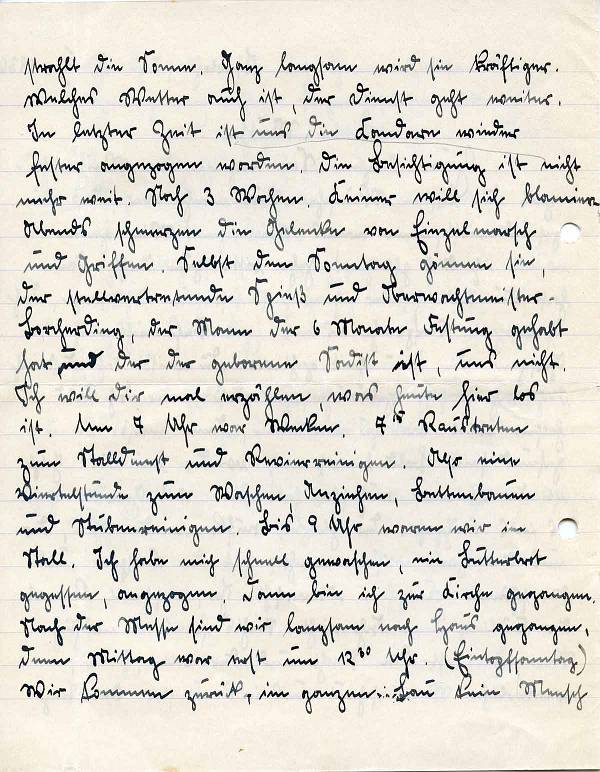 strahlt die Sonne. Ganz langsam wird sie kräftiger.
Welches Wetter auch ist, der Dienst geht weiter.
In letzter Zeit ist uns die Kandare wieder
fester angezogen worden. Die Besichtigung ist nicht
mehr weit. Noch 3 Wochen. Keiner will sich blamieren
Abends schmerzen die Gelenke von Einzelmarsch
und Griffen. Selbst den Sonntag gönnen sie,
der stellvertretende Spieß und Oberwachtmeister-
Borcherding, der Mann der 6 Monate Festung gehabt
hat und der der geborene Sadist ist, uns nicht.
Ich will dir mal erzählen, was heute hier los
ist. Um 7 Uhr war Wecken. 7¹⁵ Raustreten
zum Stalldienst und Revierreinigen. Also eine
Viertelstunde zum Waschen, Anziehen, Bettenbauen
und Stubenreinigen. Bis 9 Uhr waren wir im
Stall. Ich habe mich schnell gewaschen, ein Butterbrot
gegessen, angezogen. Dann bin ich zur Kirche gegangen.
Nach der Messe sind wir langsam nach Haus gegangen,
denn Mittag war erst um 12³⁰ Uhr. (Eintopfsonntag)
Wir kommen zurück, im ganzen Bau kein Mensch